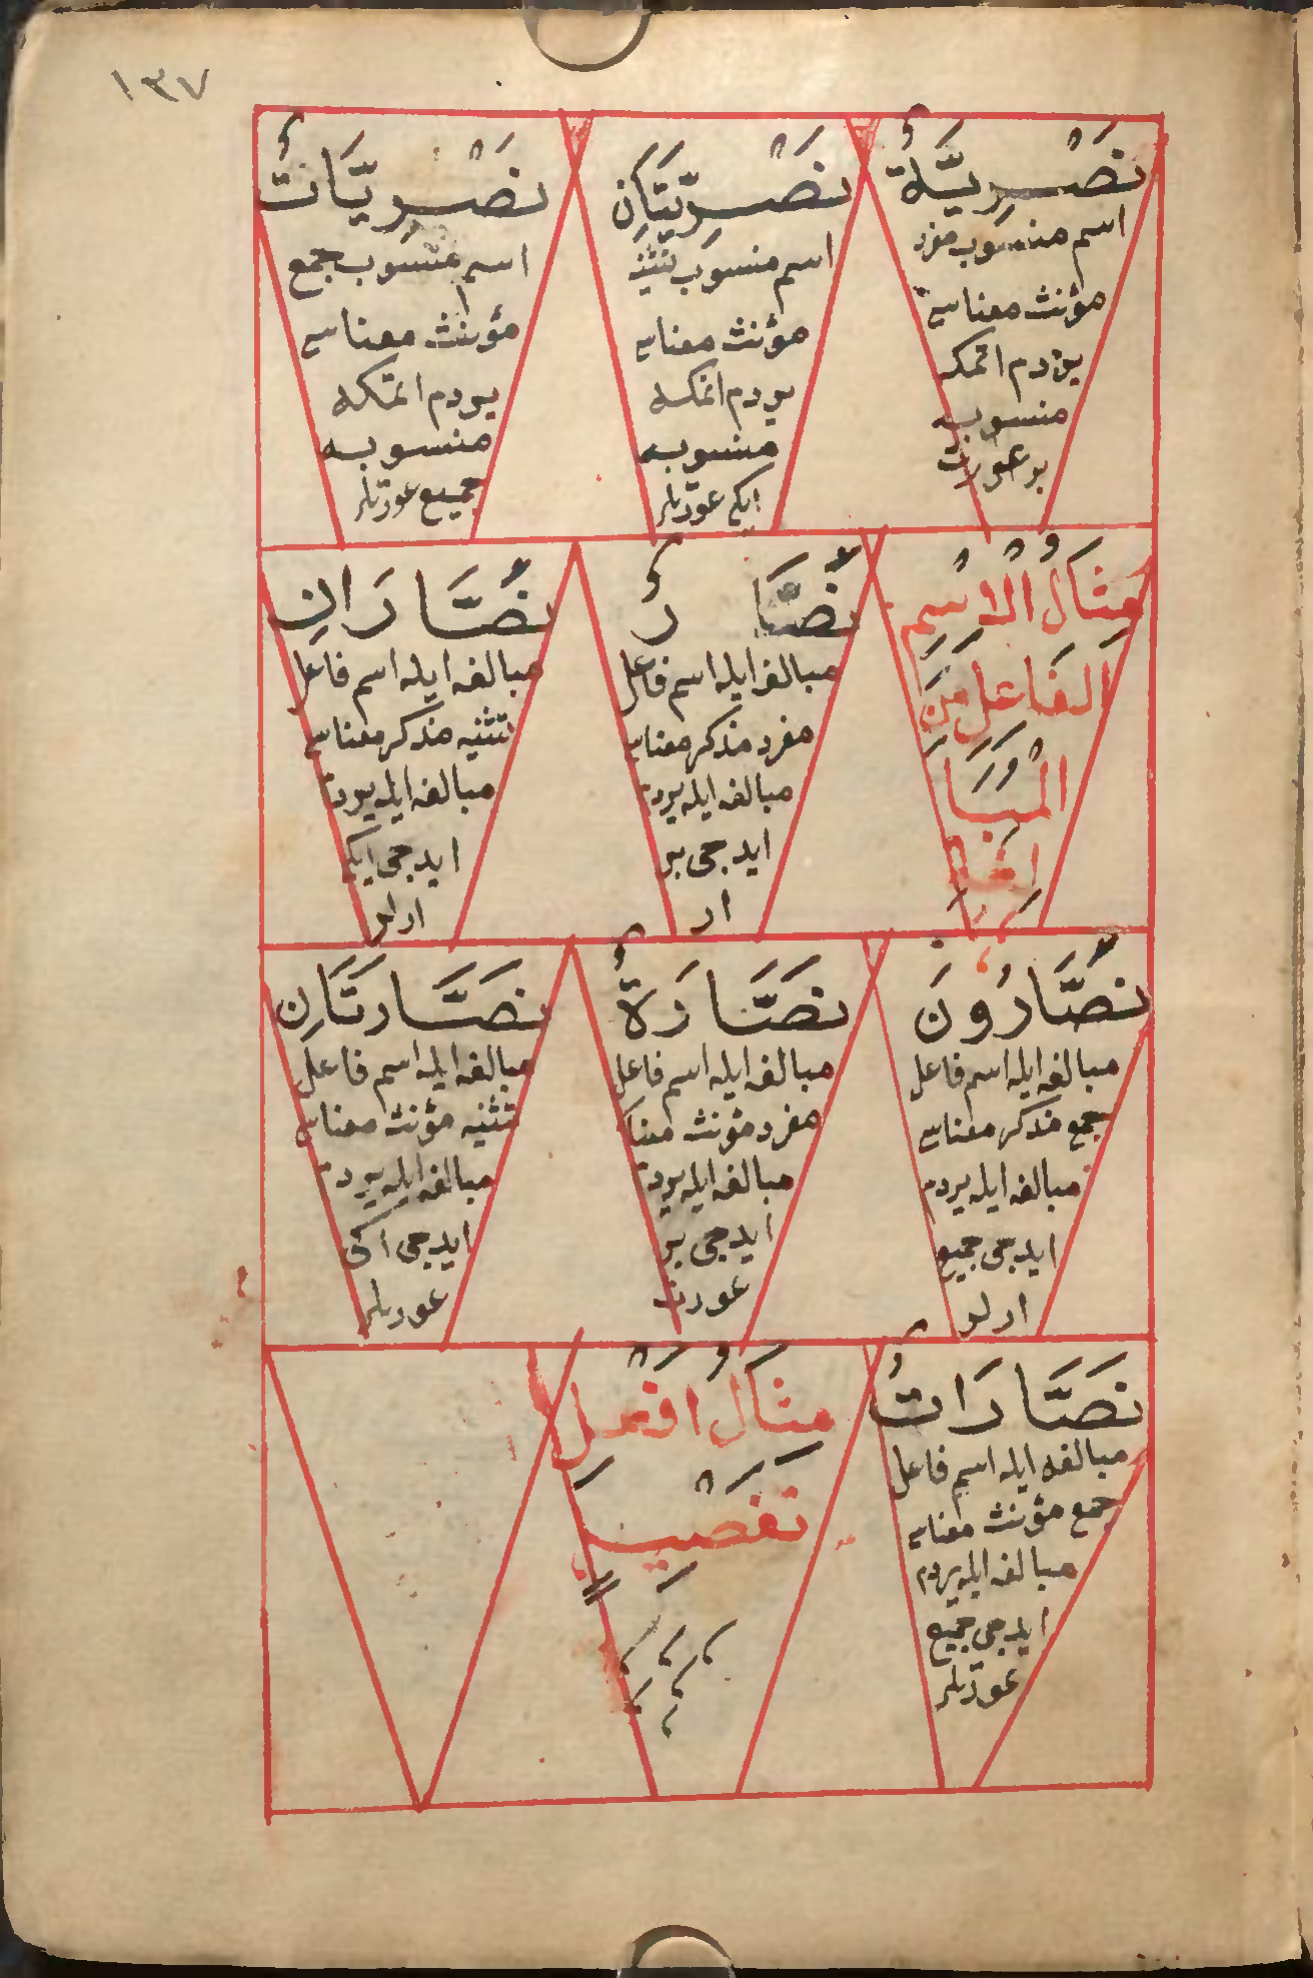 ١٣٧
نَصْرِيَّةٌ
اسم منسوب مفرد
مؤنث معناسى
يردم اتمكه
منسوبه
بر عورت
نَصْرِيَّتَانِ
اسم منسوب تثنيه
مؤنث معناسى
يردم اتمكه
منسوبه
ايكى عورتلر
نَصْرِيَّاتٌ
اسم منسوب جمع
مؤنث معناسى
يردم اتمكه
منسوبه
جميع عورتلر
مِثَالُ الْاِسْمِ
الفَاعِلِ مِنَ
الْمُبَا
لَغَةِ
نَصَّارٌ
مبالغه ايله اسم فاعل
مفرد مذكر معناسى
مبالغه ايله يردم
ايدجى بر
ار
نَصَّارَانِ
مبالغه ايله اسم فاعل
تثنيه مذكر معناسى
مبالغه ايله يردم
ايدجى ايكى
ارلر
نَصَّارُونَ
مبالغه ايله اسم فاعل
جمع مذكر معناسى
مبالغه ايله يردم
ايدجى جميع
ارلر
نَصَّارَةٌ
مبالغه ايله اسم فاعل
مفرد مؤنث معنا
مبالغه ايله يردم
ايدجى بر
عورت
نَصَّارَتَانِ
مبالغه ايله اسم فاعل
تثنيه مؤنث معناسى
مبالغه ايله يردم
ايدجى اكى
عورتلر
نَصَّارَاتٌ
مبالغه ايله اسم فاعل
جمع مؤنث معناسى
مبالغه ايله يردم
ايدجى جميع
عورتلر
مِثَالُ اَفْعَل